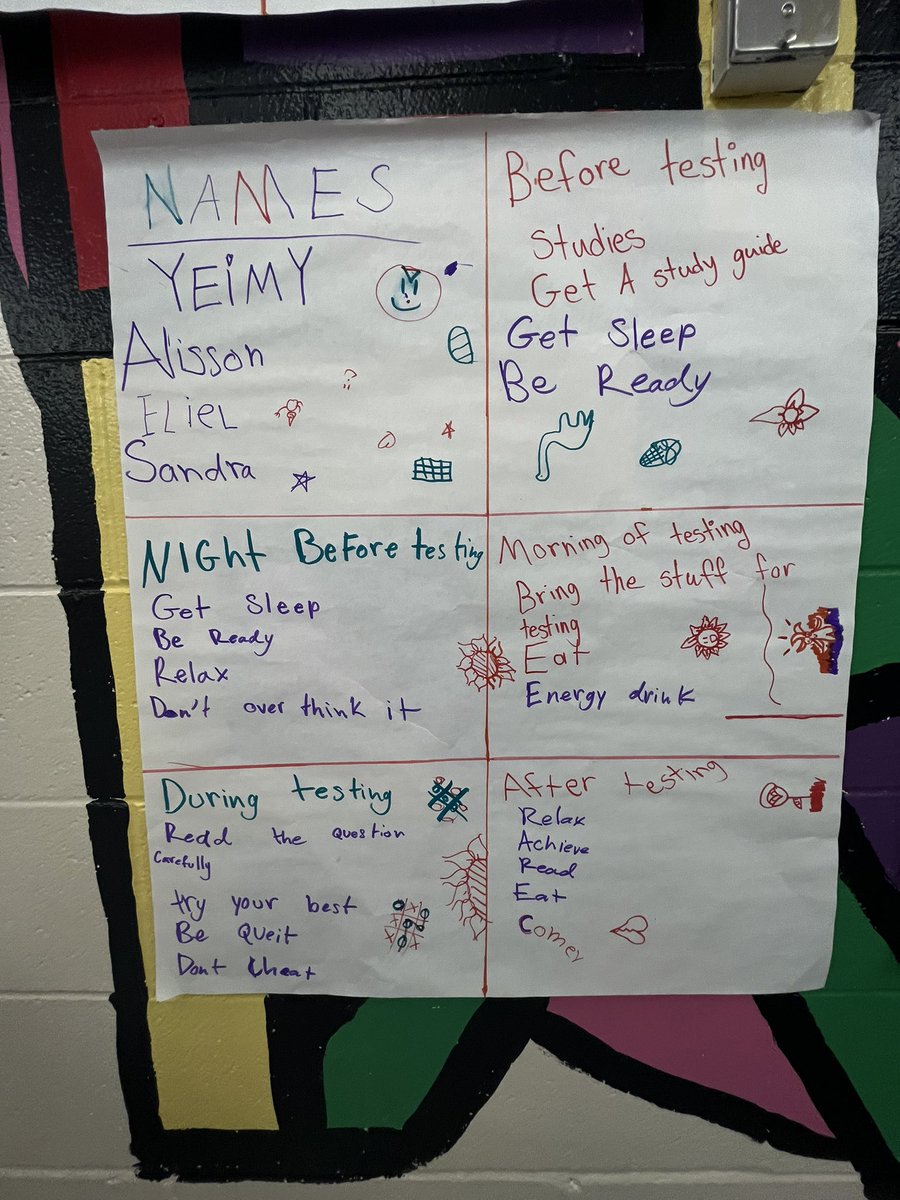 NAMES
YEiMY
Alisson
ELiEL
Sandra
Before testing
Studies
Get A study guide
Get Sleep
Be Ready
NIGHt BeFore testing
Get Sleep
Be Ready
Relax
Don't over think it
Morning of testing
Bring the stuff for
testing
Eat
Energy drink
During testing
Read the question
Carefully
try your best
Be Queit
Dont Cheat
After testing
Relax
Achieve
Read
Eat
Comer